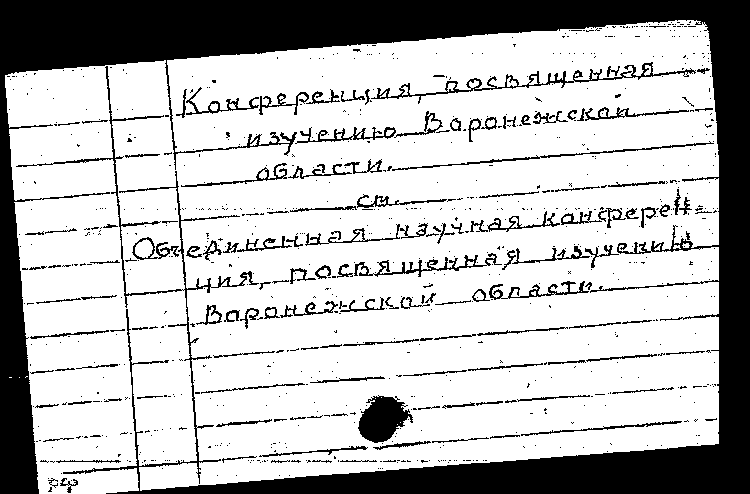 Конференция, посвященная
изучению Воронежской
области.
см.
Объединенная научная конферен-
ция, посвященная изучению
Воронежской области.